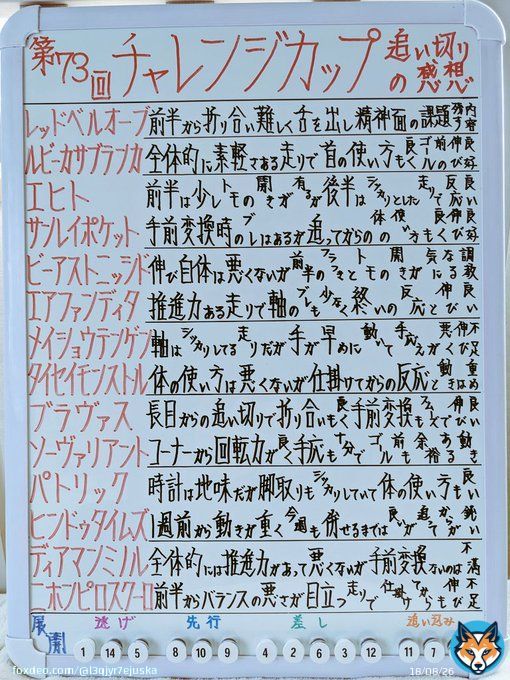 第73回 チャレンジカップ 追い切りの感想
レッドベルオーブ 前半から折り合い難しく舌を出し精神面の課題残す内容
ルビーカサブランカ 全体的に素軽さある走りで首の使い方も良くゴール前の伸び良好
エヒト 前半は少しトモの開きが有るが後半はシッカリとした走りで反応良い
サンレイポケット 手前変換時のブレはあるが追ってからの体の使い方も良く伸び良好
ビーアストニッシド 伸び自体は悪くないが前半のフラつきとトモの開きが気になる調教
エアファンディタ 推進力ある走りで軸のブレも少なく終いの反応と伸び良い
メイショウテンゲン 軸はシッカリしてる走りだが手が早めに動いて手応え悪く伸び不足
タイセイモンストル 体の使い方は悪くないが仕掛けてからの反応と動き重め
ブラヴァス 長目からの追い切りで折り合いも良く手前変換も伸び良い
ソーヴァリアント コーナーから回転力が良く手応も十分でゴール前も余裕ある動き
パトリック 時計は地味だが脚取りもシッカリしていて体の使い方も良い
ヒンドゥタイムズ 1週前から動きが重く今週も併せるまでは良いが追ってからが鈍い
ディアマンミノル 全体的には推進力があって悪くないが手前変換ないのは不満
ニホンピロスクーロ 前半からバランスの悪さが目立つ走りで仕掛けてからも伸び不足
展開 逃げ 先行 差し 追い込み
1 14 5 8 10 9 4 2 6 3 13 12 11 7
foxdeo.com/@l3qjyr7ejuska 18/08/26